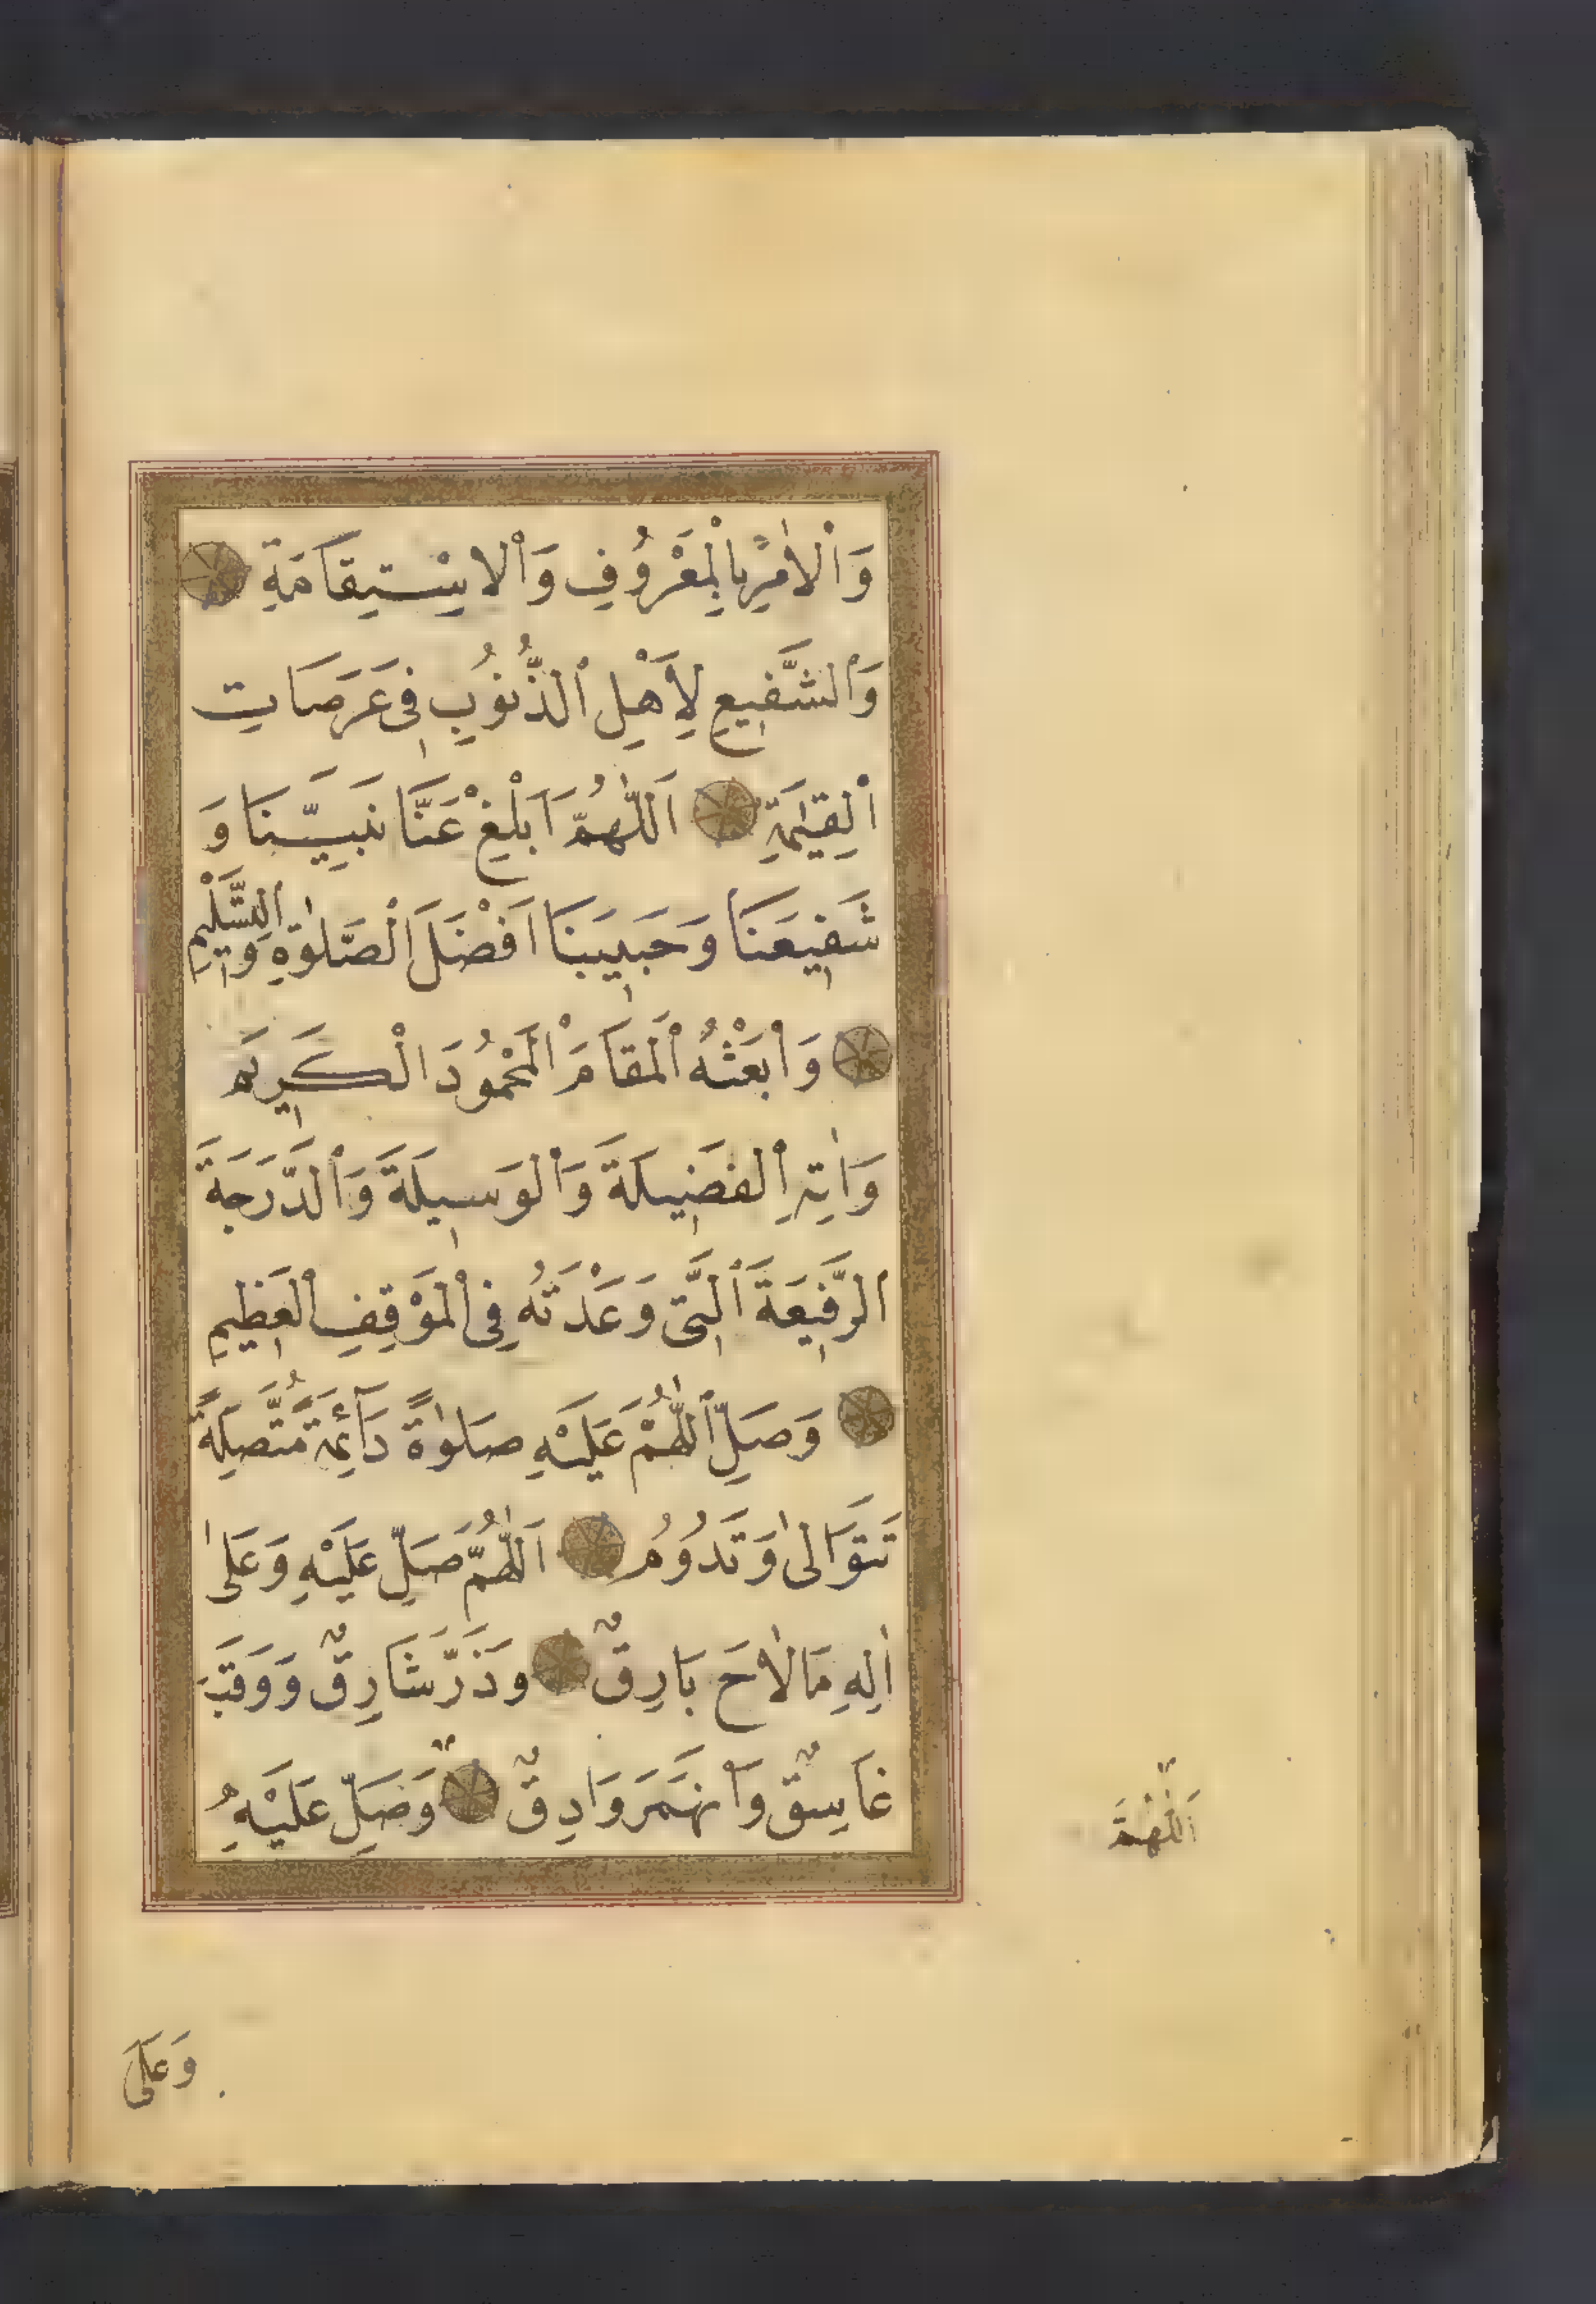 وَاْلاٰمِرِ بِالْمَعْرُوفِ وَاْلاِسْتِقَامَةِ
وَالشَّفِيعِ لِأَهْلِ الذُّنُوبِ فِى عَرَصَاتِ
الْقِيٰمَةِ اَللّٰهُمَّ اَبْلِغْ عَنَّا نَبِيَّنَا وَ
شَفِيعَنَا وَحَبِيبَنَا اَفْضَلَ الْصَّلوٰةِ وَالتَّسْلِيمِ
وَابْعَثْهُ الْمَقَامَ الْمَحْمُودَ الْكَرِيمَ
وَاٰتِهِ الْفَضِيلَةَ وَالْوَسِيلَةَ وَالدَّرَجَةَ
الرَّفِيعَةَ الَّتِى وَعَدْتَهُ فِى الْمَوْقِفِ الْعَظِيمِ
وَصَلِّ اللّٰهُمَّ عَلَيْهِ صَلوٰةً دَآئِمَةً مُتَّصِلَةً
تَتَوَالىٰ وَتَدُومُ اَللّٰهُمَّ صَلِّ عَلَيْهِ وَعَلىٰ
اٰلِهِ مَا لاٰحَ بَارِقٌ وَذَرَّ شَارِقٌ وَوَقَبَ
غَاسِقٌ وَانْهَمَرَ وَادِقٌ وَصَلِّ عَلَيْهِ
اَللّٰهُمَّ
وَعَلَى